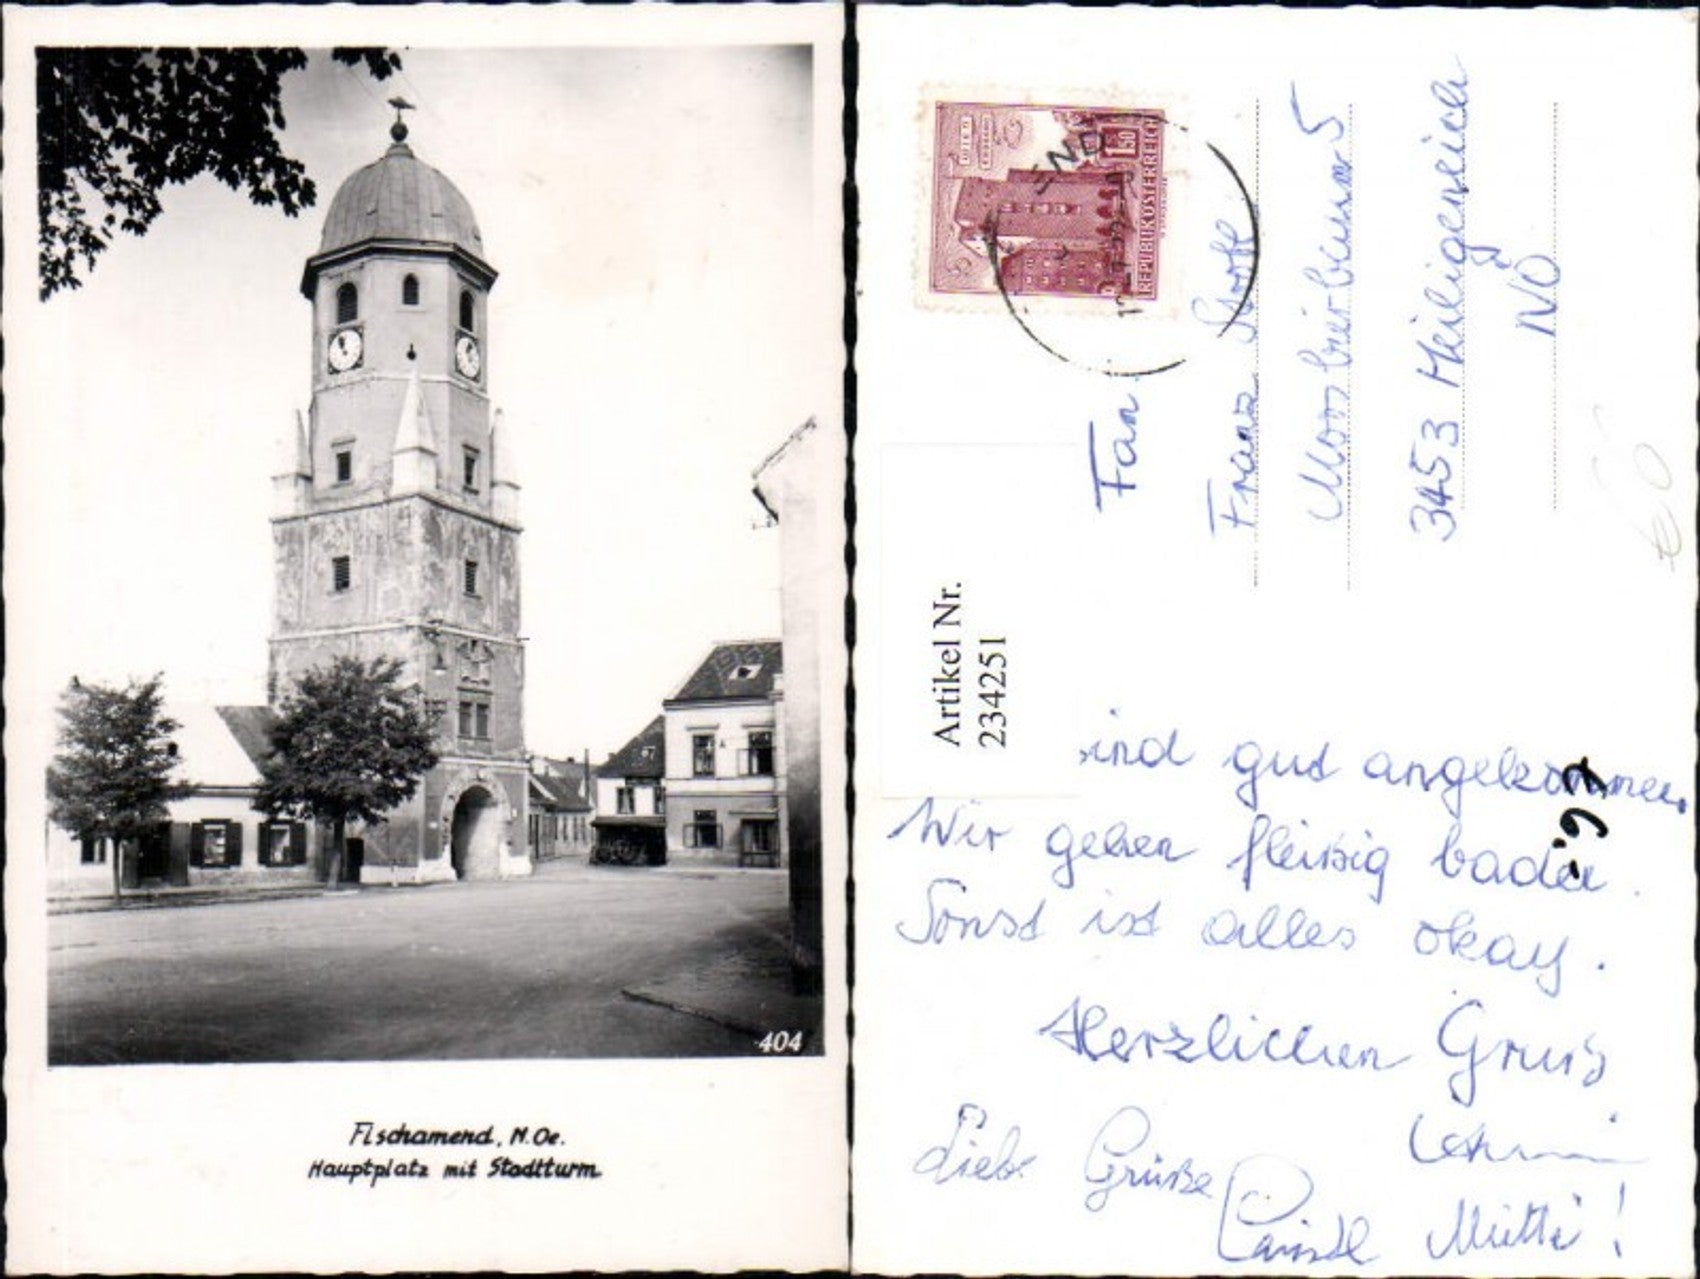 404
Fischamend, N.Oe.
Hauptplatz mit Stadtturm
1.50
REPUBLIK ÖSTERREICH
Fam.
Franz
Moosbierbaum 5
3453 Heiligeneich
NÖ
Artikel Nr.
234251
ind gut angekommen.
Wir gehen fleißig baden.
Sonst ist alles okay.
Herzlichen Gruß
Liebe Grüße
Mitzi!